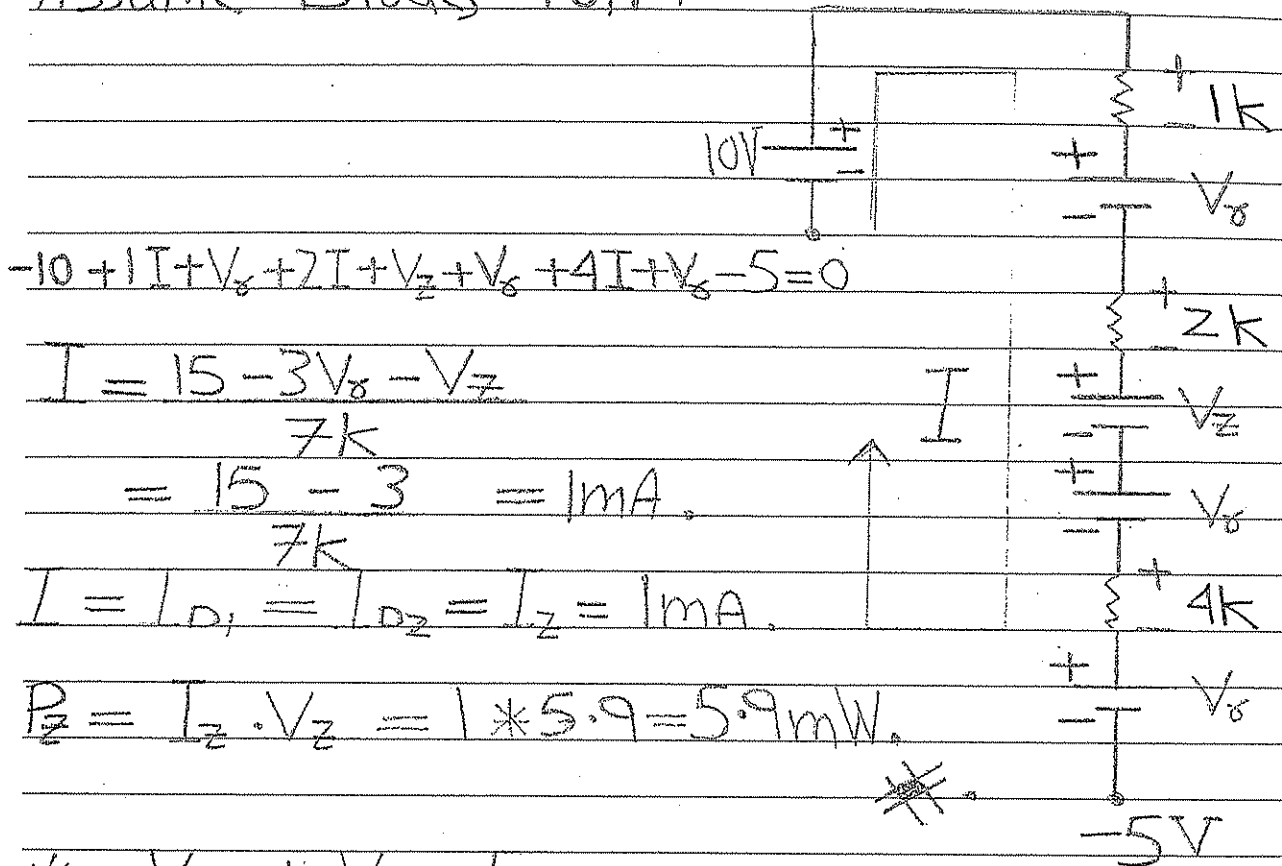 Assume Diodes
10V + -
+ - 1k
+ - Vγ
-10+1I+Vγ+2I+Vz+Vγ+4I+Vγ-5=0
+ - 2k
I = 15-3Vγ-Vz
7k
I
+ - Vz
= 15 - 3 = 1mA.
7k
+ - Vγ
I = ID1 = IDz = Iz = 1mA.
+ - 4k
Pz = Iz·Vz = 1*5.9=5.9mW.
+ - Vγ
-5V